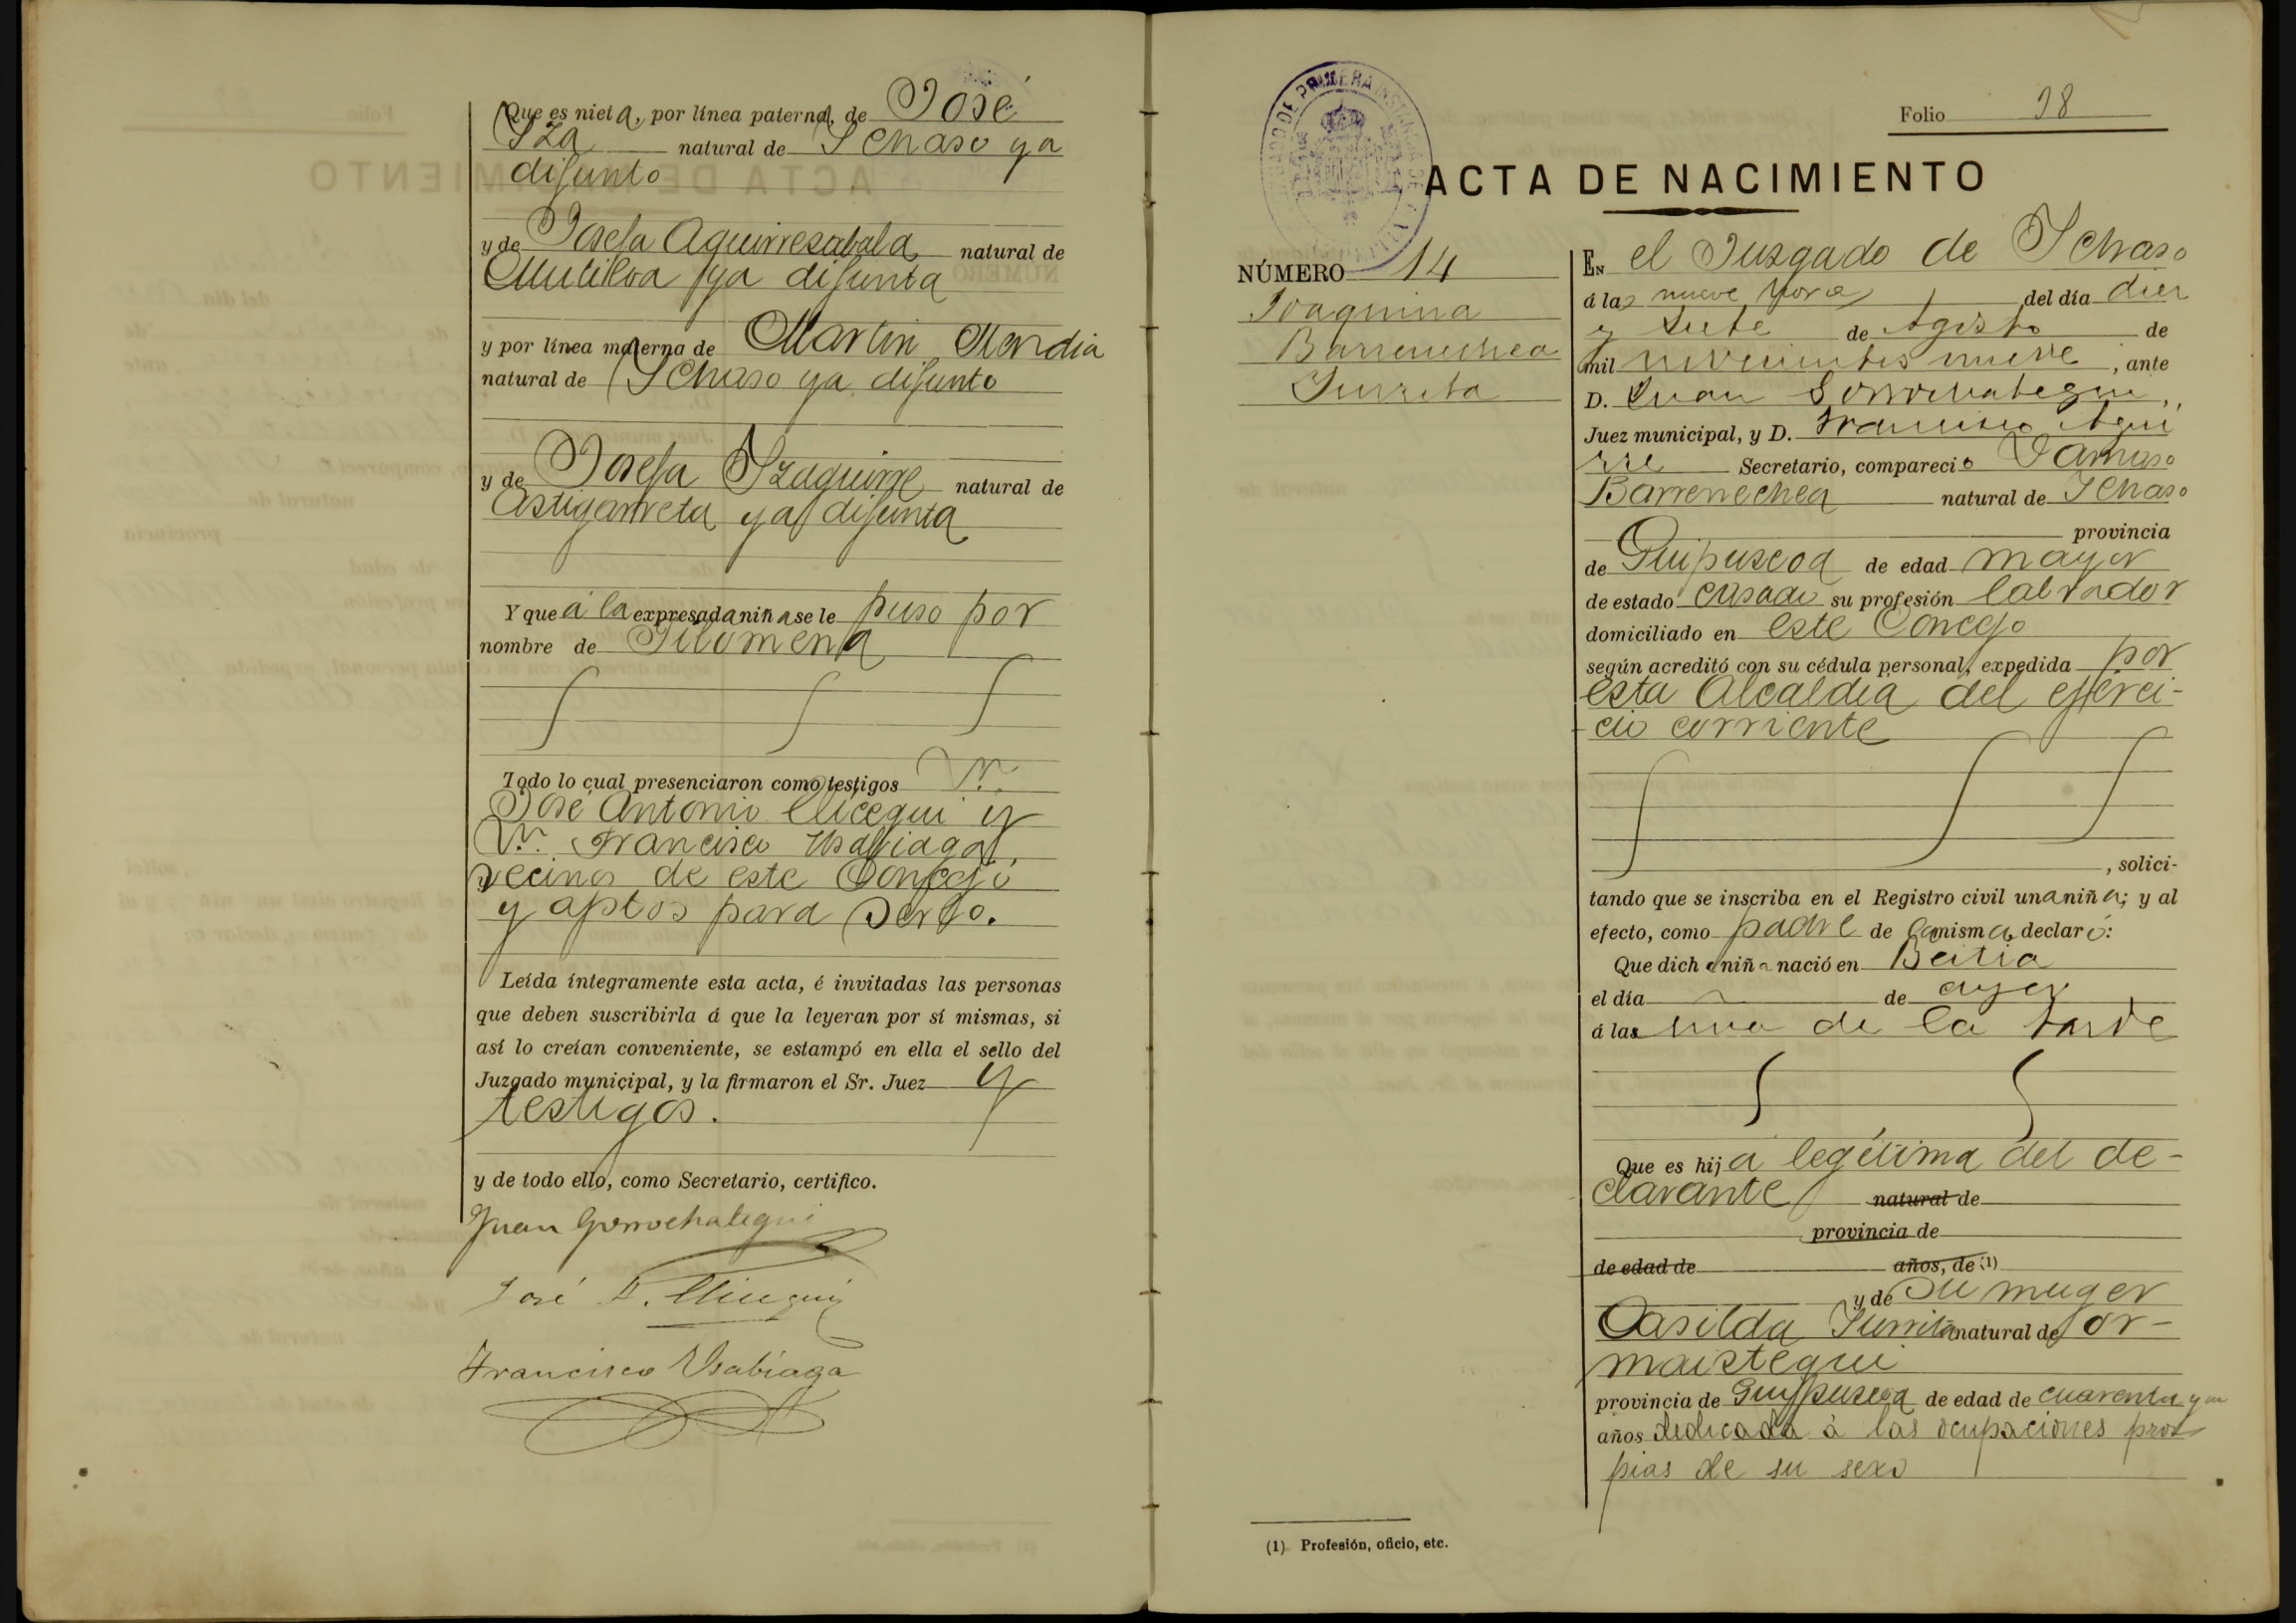 Que es nieta, por línea paterna, de José
Iza natural de Ichaso ya
difunto
y de Josefa Aguirresabala natural de
Mutiloa ya difunta
y por línea materna de Martin Mendia
natural de Ichaso ya difunto
y de Josefa Izaguirre natural de
Astigarreta ya difunta
Y que á la expresada niña se le puso por
nombre de Filomena
Todo lo cual presenciaron como testigos
José Antonio Ellicegui y
Francisco Usabiaga,
vecinos de este Concejo
y aptos para serlo.
Leída íntegramente esta acta, é invitadas las personas
que deben suscribirla á que la leyeran por sí mismas, si
así lo creían conveniente, se estampó en ella el sello del
Juzgado municipal, y la firmaron el Sr. Juez y
testigos.
y de todo ello, como Secretario, certifico.
Juan Gorrochategui
José A. Ellicegui
Francisco Usabiaga
Folio 18
ACTA DE NACIMIENTO
NÚMERO 14
Joaquina
Barrenechea
Iurrita
En el Juzgado de Ichaso
á las nueve horas del día diez
y siete de Agosto de
mil novecientos nueve, ante
D. Juan Gorrochategui,
Juez municipal, y D. Francisco Agui
rre Secretario, compareció Damaso
Barrenechea natural de Ichaso
provincia
de Guipuscoa de edad mayor
de estado casado su profesión labrador
domiciliado en este Concejo
según acreditó con su cédula personal, expedida por
esta Alcaldia del ejerci-
cio corriente
, solici-
tando que se inscriba en el Registro civil una niña; y al
efecto, como padre de la misma, declaró:
Que dicha niña nació en Beitia
el día de ayer
á las una de la tarde
Que es hija legítima del de-
clarante natural de
provincia de
de edad de años, de (1)
y de su muger
Casilda Iurrita natural de Or-
maiztegui
provincia de Guipuscoa de edad de cuarenta y un
años dedicada á las ocupaciones pro-
pias de su sexo
(1) Profesión, oficio, etc.